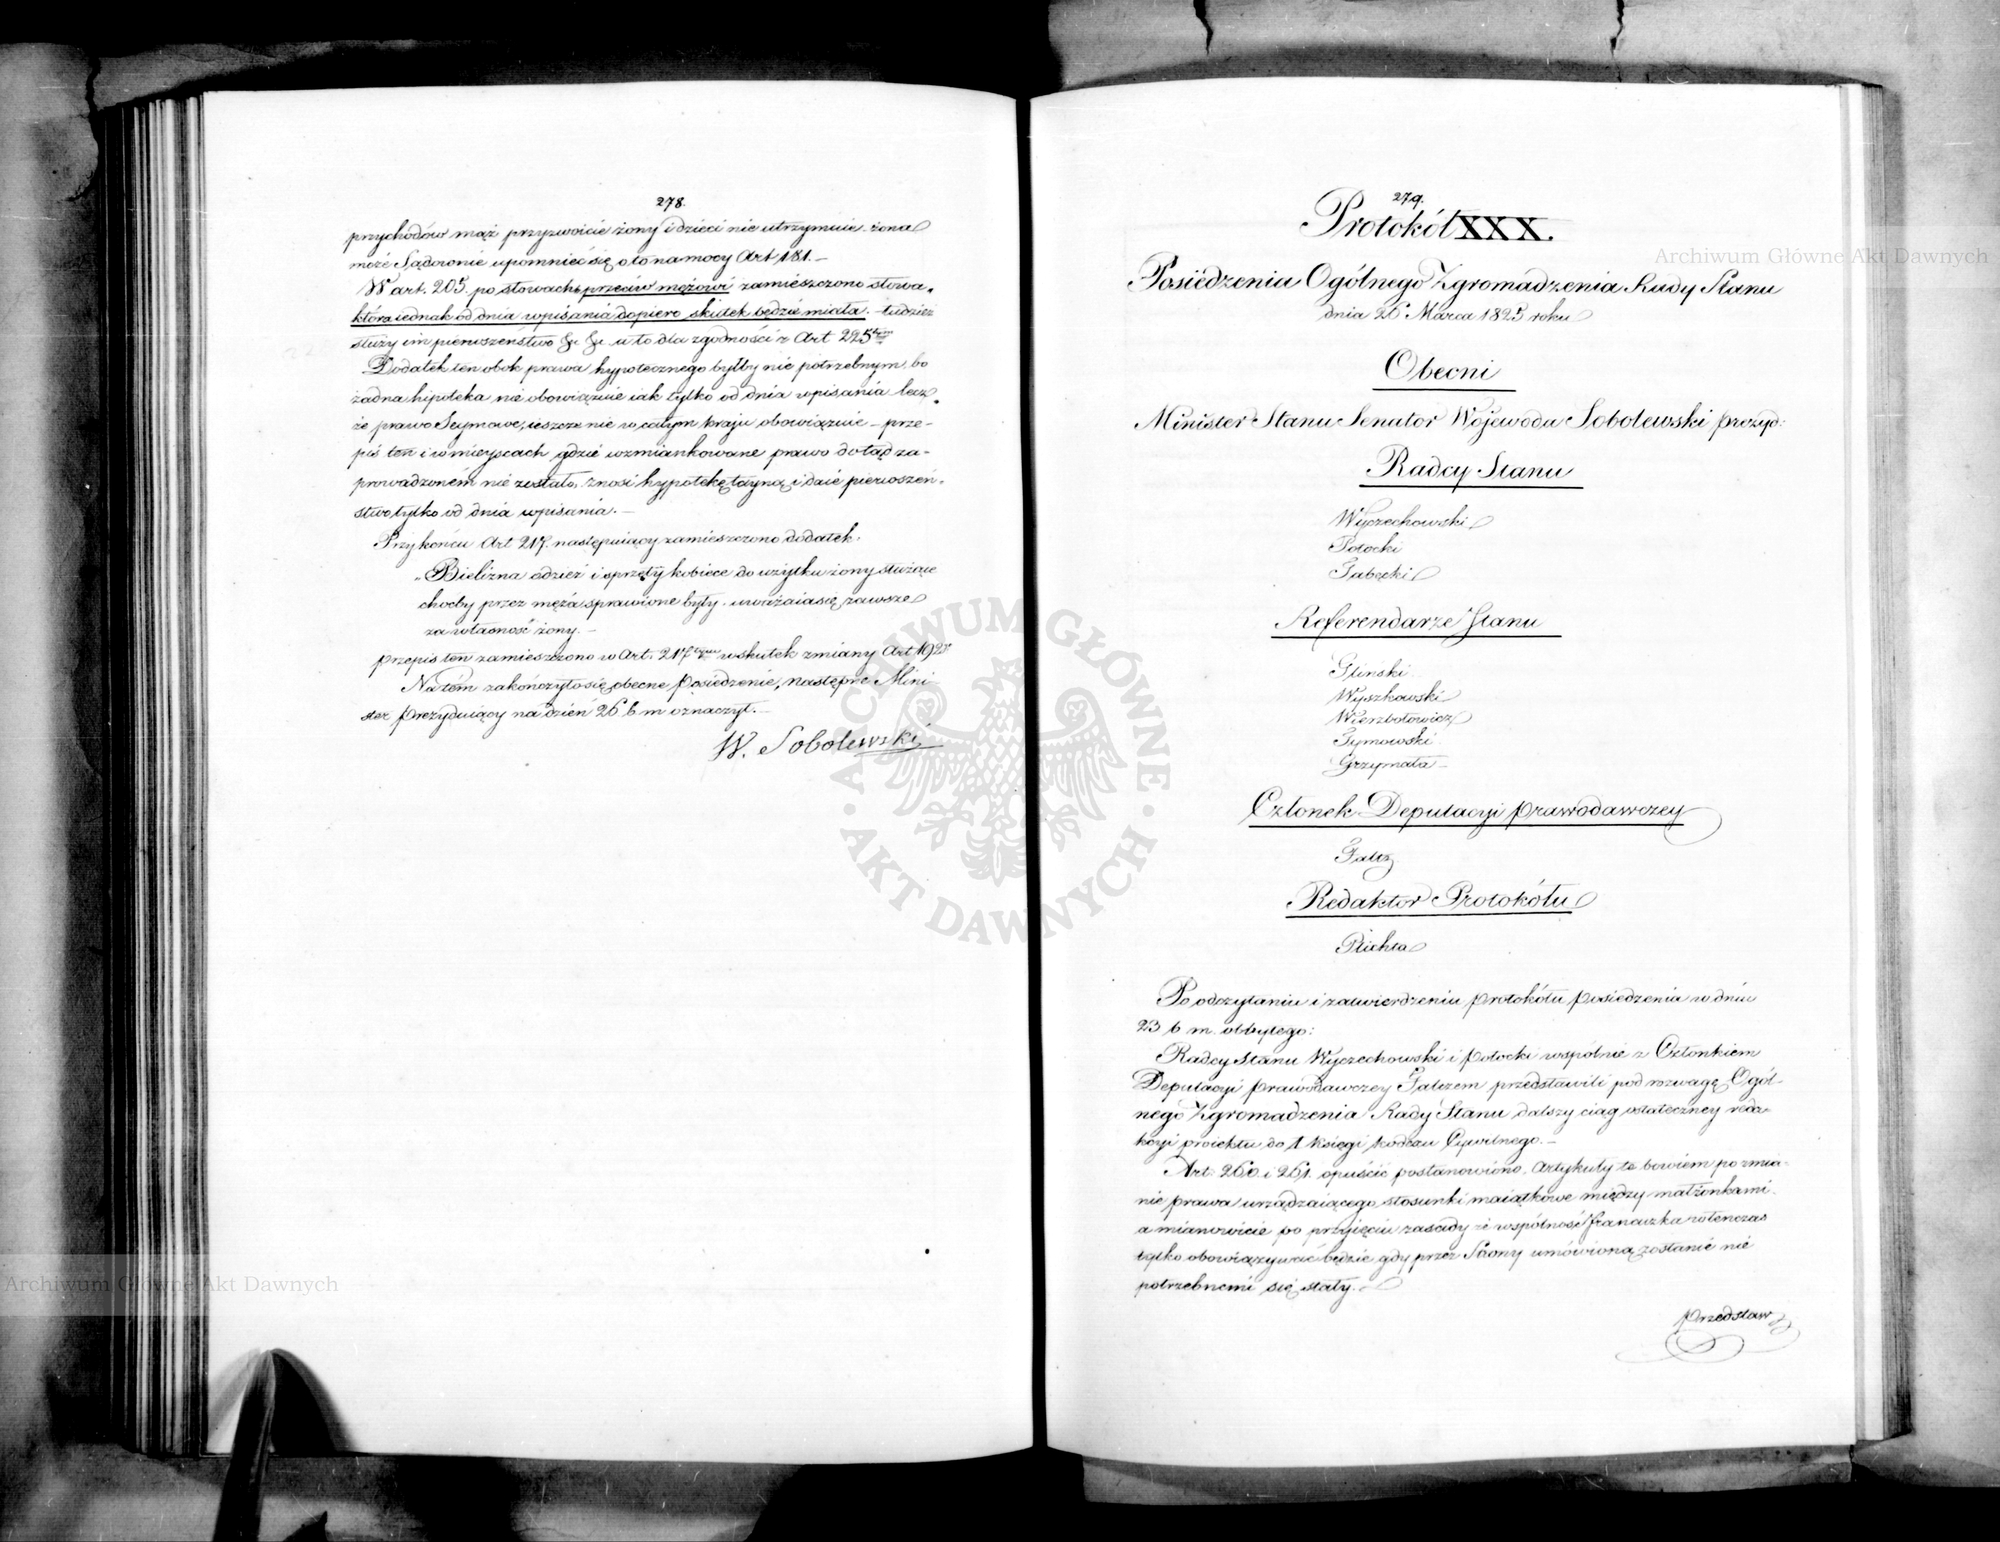 278.
przychodów mąż przyzwoicie żony i dzieci nie utrzymuie. żona
może Sądownie upomnieć się o to na mocy Art 181. —
W art. 205. po słowach przeciw mężowi zamieszczono słowa.
która iednak od dnia wpisania dopiero skutek będzie miała. — tudzież
służy im pierwszeństwo &c &c. a to dla zgodności z Art 225tym
Dodatek ten obok prawa hypotecznego byłby nie potrzebnym, bo
żadna hipoteka nie obowiązuie iak tylko od dnia wpisania lecz
że prawo Seymowe, ieszcze nie w całym kraju obowiązuie — prze-
pis ten i w mieyscach gdzie wzmiankowane prawo dotąd za-
prowadzoném nie zostało, znosi hypotekę tayną i daie pierwszeń-
stwo tylko od dnia wpisania. —
Przy końcu Art 217. następuiący zamieszczono dodatek.
„Bielizna odzież i sprzęty kobiece do użytku żony służące
choćby przez męża sprawione były. uważaią się zawsze
za własność żony. —
przepis ten zamieszczono w Art. 217tym w skutek zmiany Art 192go
Na tém zakończyło się obecne posiedzenie, następne Mini-
ster prezyduiący na dzień 26 b m oznaczył. —
W. Sobolewski
279.
Protokół XXX.
Posiedzenia Ogólnego Zgromadzenia Rady Stanu
dnia 26 Marca 1825 roku
Obecni
Minister Stanu Senator Wojewoda Sobolewski prezyd:
Radcy Stanu
Wyczechowski
Potocki
Tabęcki
Referendarze Stanu
Gliński
Wyszkowski
Wierzbołowicz
Tymowski
Grzymała —
Członek Deputacyi prawodawczey
Faltz
Redaktor Protokółu
Plichta
Po odczytaniu i zatwierdzeniu protokółu posiedzenia w dniu
23 b m. odbytego:
Radcy Stanu Wyczechowski i Potocki wspólnie z Członkiem
Deputacyi prawodawczey Faltzem przedstawili pod rozwagę Ogól-
nego Zgromadzenia Rady Stanu dalszy ciąg ostateczney redak-
kcyi proiektu do 1 księgi kodexu Cywilnego. —
Art: 260. i 261. opuścić postanowiono. Artykuły te bowiem po zmia-
nie prawa urządzaiącego stosunki maiątkowe między małżonkami.
a mianowicie po przyjęciu zasady że wspólność francuzka wtenczas
tylko obowiązywać będzie gdy przez Strony umówioną zostanie nie
potrzebnemi się stały. —
przedstaw
Archiwum Główne Akt Dawnych
Archiwum Główne Akt Dawnych
ARCHIWUM GŁÓWNE AKT DAWNYCH